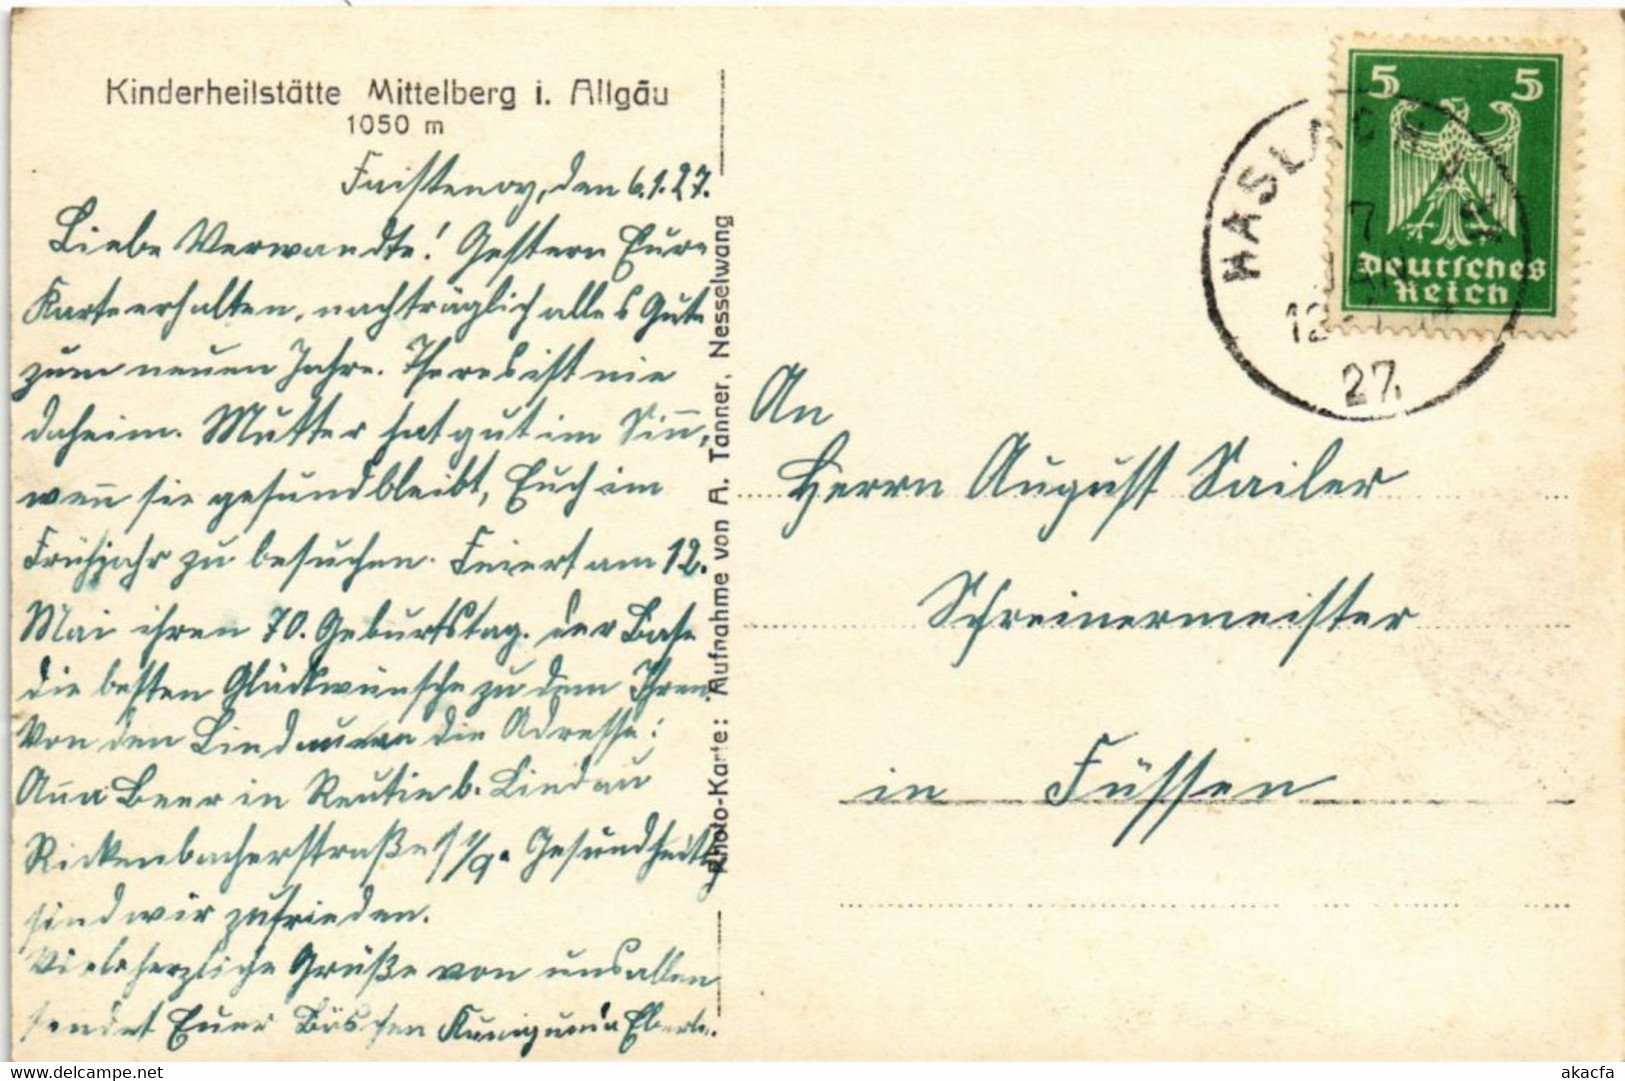 Kinderheilstätte Mittelberg i. Allgäu
1050 m
Faistenoy, den 6.1.27.
Liebe Verwandte! Gestern Eure
Karte erhalten, nachträglich alles Gute
zum neuen Jahre. Theres ist nie
daheim. Mutter hat gut im Sin̅,
wen̅ sie gesund bleibt, Euch im
Frühjahr zu besuchen. Feiert am 12.
Mai ihren 70. Geburtstag. der Base
die besten Glückwünsche zu dem Ihren.
Von den Lindauern die Adresse:
An̅a Beer in Reutin b. Lindau
Rickenbacherstraße 1/9. Gesundheitl.
sind wir zufrieden.
Viele herzliche Grüße von uns allen
sendet Euer Bäschen Kunigunda Eberle.
Photo-Karte: Aufnahme von A. Tanner, Nesselwang
5 5
Deutsches
Reich
HASLACH
7
JAN
12-
27.
An
Herrn August Sailer
Schreinermeister
in Füssen
delcampe.net
akacfa